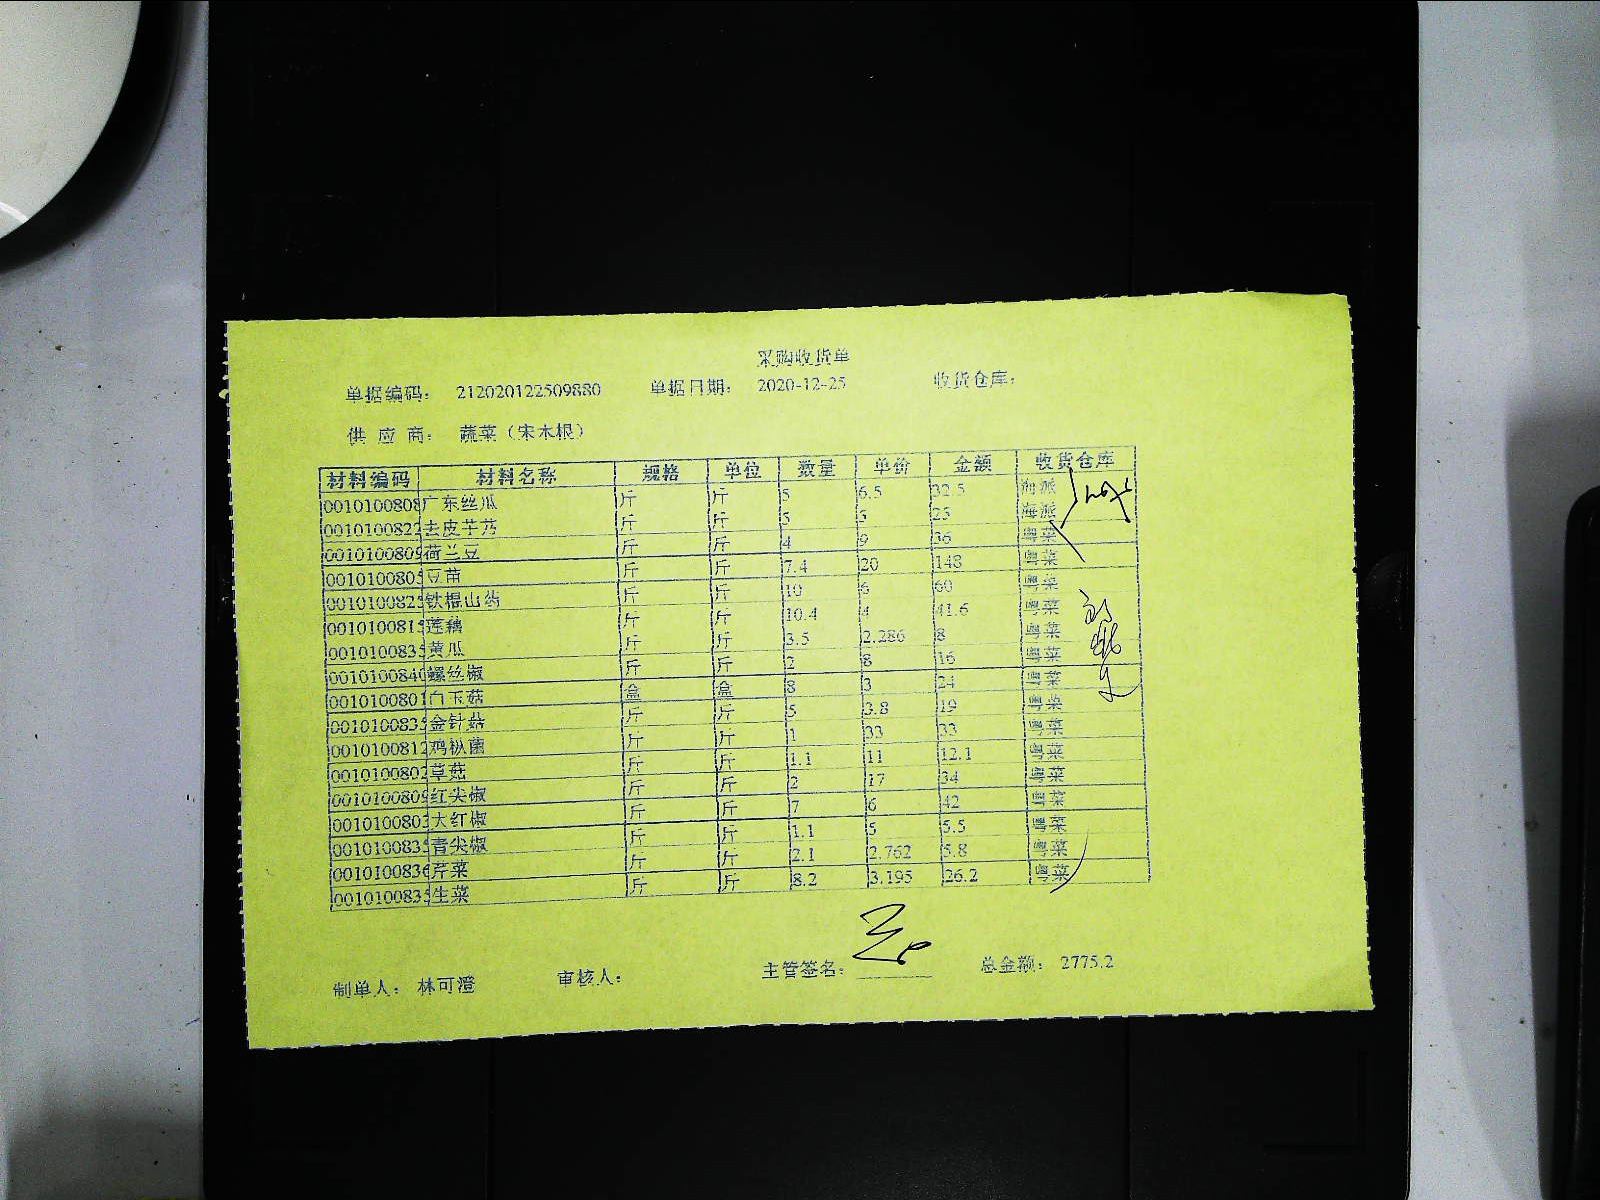 采购收货单
单据编码： 212020122509880 单据日期： 2020-12-25 收货仓库：
供 应 商： 蔬菜（宋木根）
材料编码 材料名称 规格 单位 数量 单价 金额 收货仓库
0010100808 广东丝瓜 斤 斤 5 6.5 32.5 海派
0010100822 去皮芋艿 斤 斤 5 5 25 海派
0010100809 荷兰豆 斤 斤 4 9 36 粤菜
0010100805 豆苗 斤 斤 7.4 20 148 粤菜
0010100825 铁棍山药 斤 斤 10 6 60 粤菜
0010100815 莲藕 斤 斤 10.4 4 41.6 粤菜
0010100835 黄瓜 斤 斤 3.5 2.286 8 粤菜
0010100840 螺丝椒 斤 斤 2 8 16 粤菜
0010100801 白玉菇 盒 盒 8 3 24 粤菜
0010100835 金针菇 斤 斤 5 3.8 19 粤菜
0010100812 鸡枞菌 斤 斤 1 33 33 粤菜
0010100802 草菇 斤 斤 1.1 11 12.1 粤菜
0010100809 红尖椒 斤 斤 2 17 34 粤菜
0010100803 大红椒 斤 斤 7 6 42 粤菜
0010100835 青尖椒 斤 斤 1.1 5 5.5 粤菜
0010100836 芹菜 斤 斤 2.1 2.762 5.8 粤菜
0010100835 生菜 斤 斤 8.2 3.195 26.2 粤菜
制单人： 林可澄 审核人： 主管签名： 总金额： 2775.2